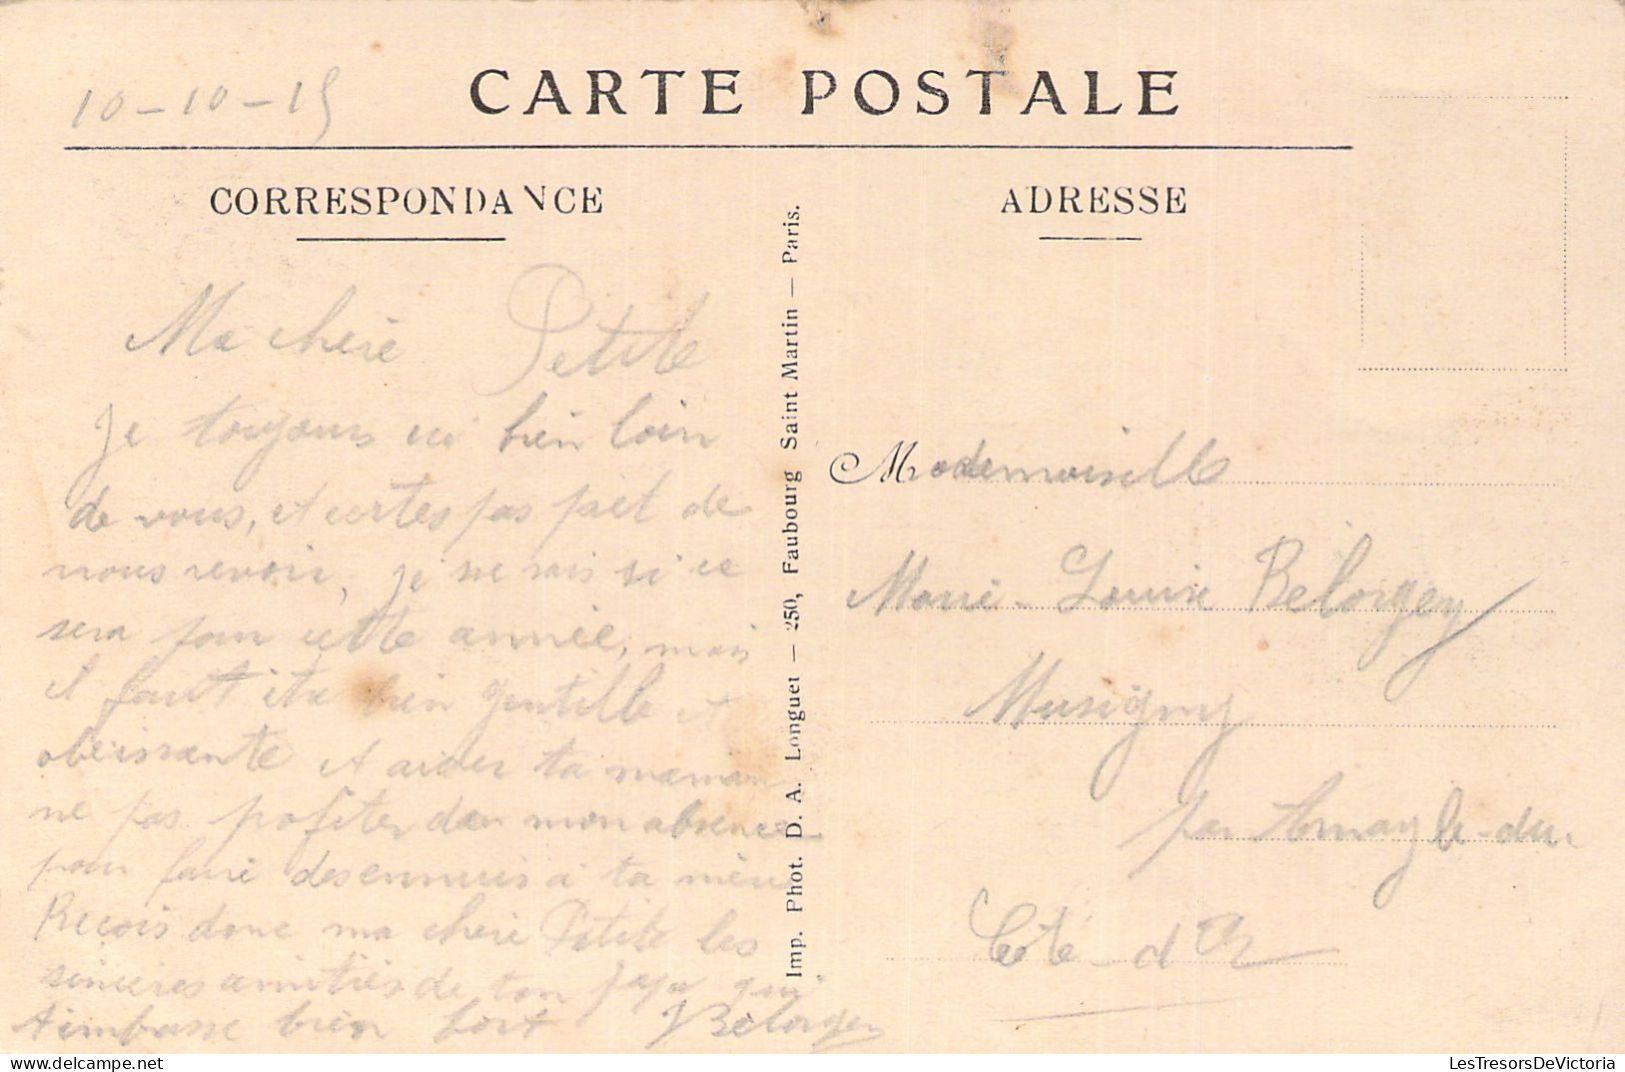 10-10-15
CARTE POSTALE
CORRESPONDANCE
ADRESSE
Ma chere Petite
Je toujours ici bien loin
de vous, et certes pas pret de
nous revoir, je ne sais si ce
sera pour cette année, mais
il faut etre bien gentille et
obeissante et aider ta maman
ne pas profiter de mon absence
pour faire des ennuis a ta mère
Recois donc ma chere Petite les
sinceres amitiés de ton papa qui
t'embrasse bien fort Belorgey
Imp. Phot. D. A. Longuet — 250, Faubourg Saint Martin — Paris.
Mademoiselle
Marie-Louise Belorgey
Musigny
par Arnay-le-duc
Côte-d'Or
LesTresorsDeVictoria